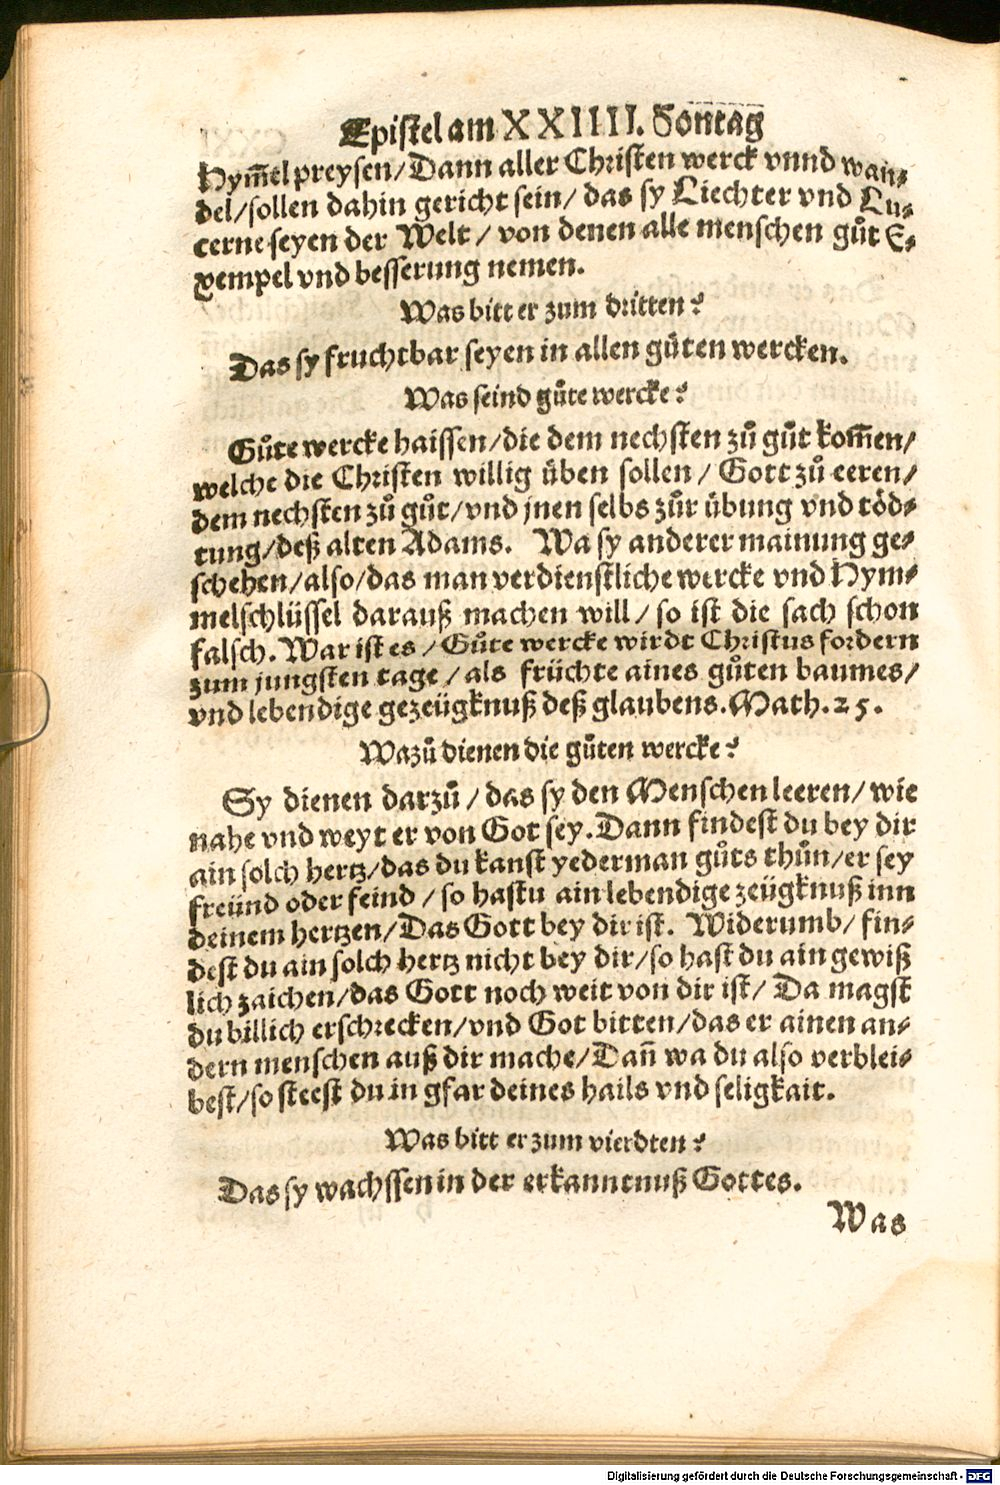 Epistel am XXIIII. Sontag
Hym̃el preysen/Dann aller Christen werck vnnd wan-
del/sollen dahin gericht sein/ das sy Liechter vnd Lu-
cerne seyen der Welt / von denen alle menschen gůt E-
xempel vnd besserung nemen.
Was bitt er zum dritten?
Das sy fruchtbar seyen in allen gůten wercken.
Was seind gůte wercke?
Gůte wercke haissen/die dem nechsten zů gůt kom̃en/
welche die Christen willig üben sollen / Gott zů eeren/
dem nechsten zů gůt/vnd jnen selbs zůr übung vnd töd-
tung/deß alten Adams. Wa sy anderer mainung ge-
schehen/also/das man verdienstliche wercke vnd Hym-
melschlüssel darauß machen will / so ist die sach schon
falsch. War ist es / Gůte wercke wirdt Christus fordern
zum jungsten tage / als früchte aines gůten baumes/
vnd lebendige gezeügknuß deß glaubens. Math. 25.
Wazů dienen die gůten wercke?
Sy dienen darzů / das sy den Menschen leeren/ wie
nahe vnd weyt er von Got sey. Dann findest du bey dir
ain solch hertz/das du kanst yederman gůts thůn/er sey
freünd oder feind / so hastu ain lebendige zeügknuß inn
deinem hertzen/Das Gott bey dir ist. Widerumb/ fin-
dest du ain solch hertz nicht bey dir/so hast du ain gewiß
lich zaichen/das Gott noch weit von dir ist/ Da magst
du billich erschrecken/vnd Got bitten/das er ainen an-
dern menschen auß dir mache/Dañ wa du also verblei-
best/so steest du in gfar deines hails vnd seligkait.
Was bitt er zum vierdten?
Das sy wachssen in der erkanntnuß Gottes.
Was
Digitalisierung gefördert durch die Deutsche Forschungsgemeinschaft - DFG